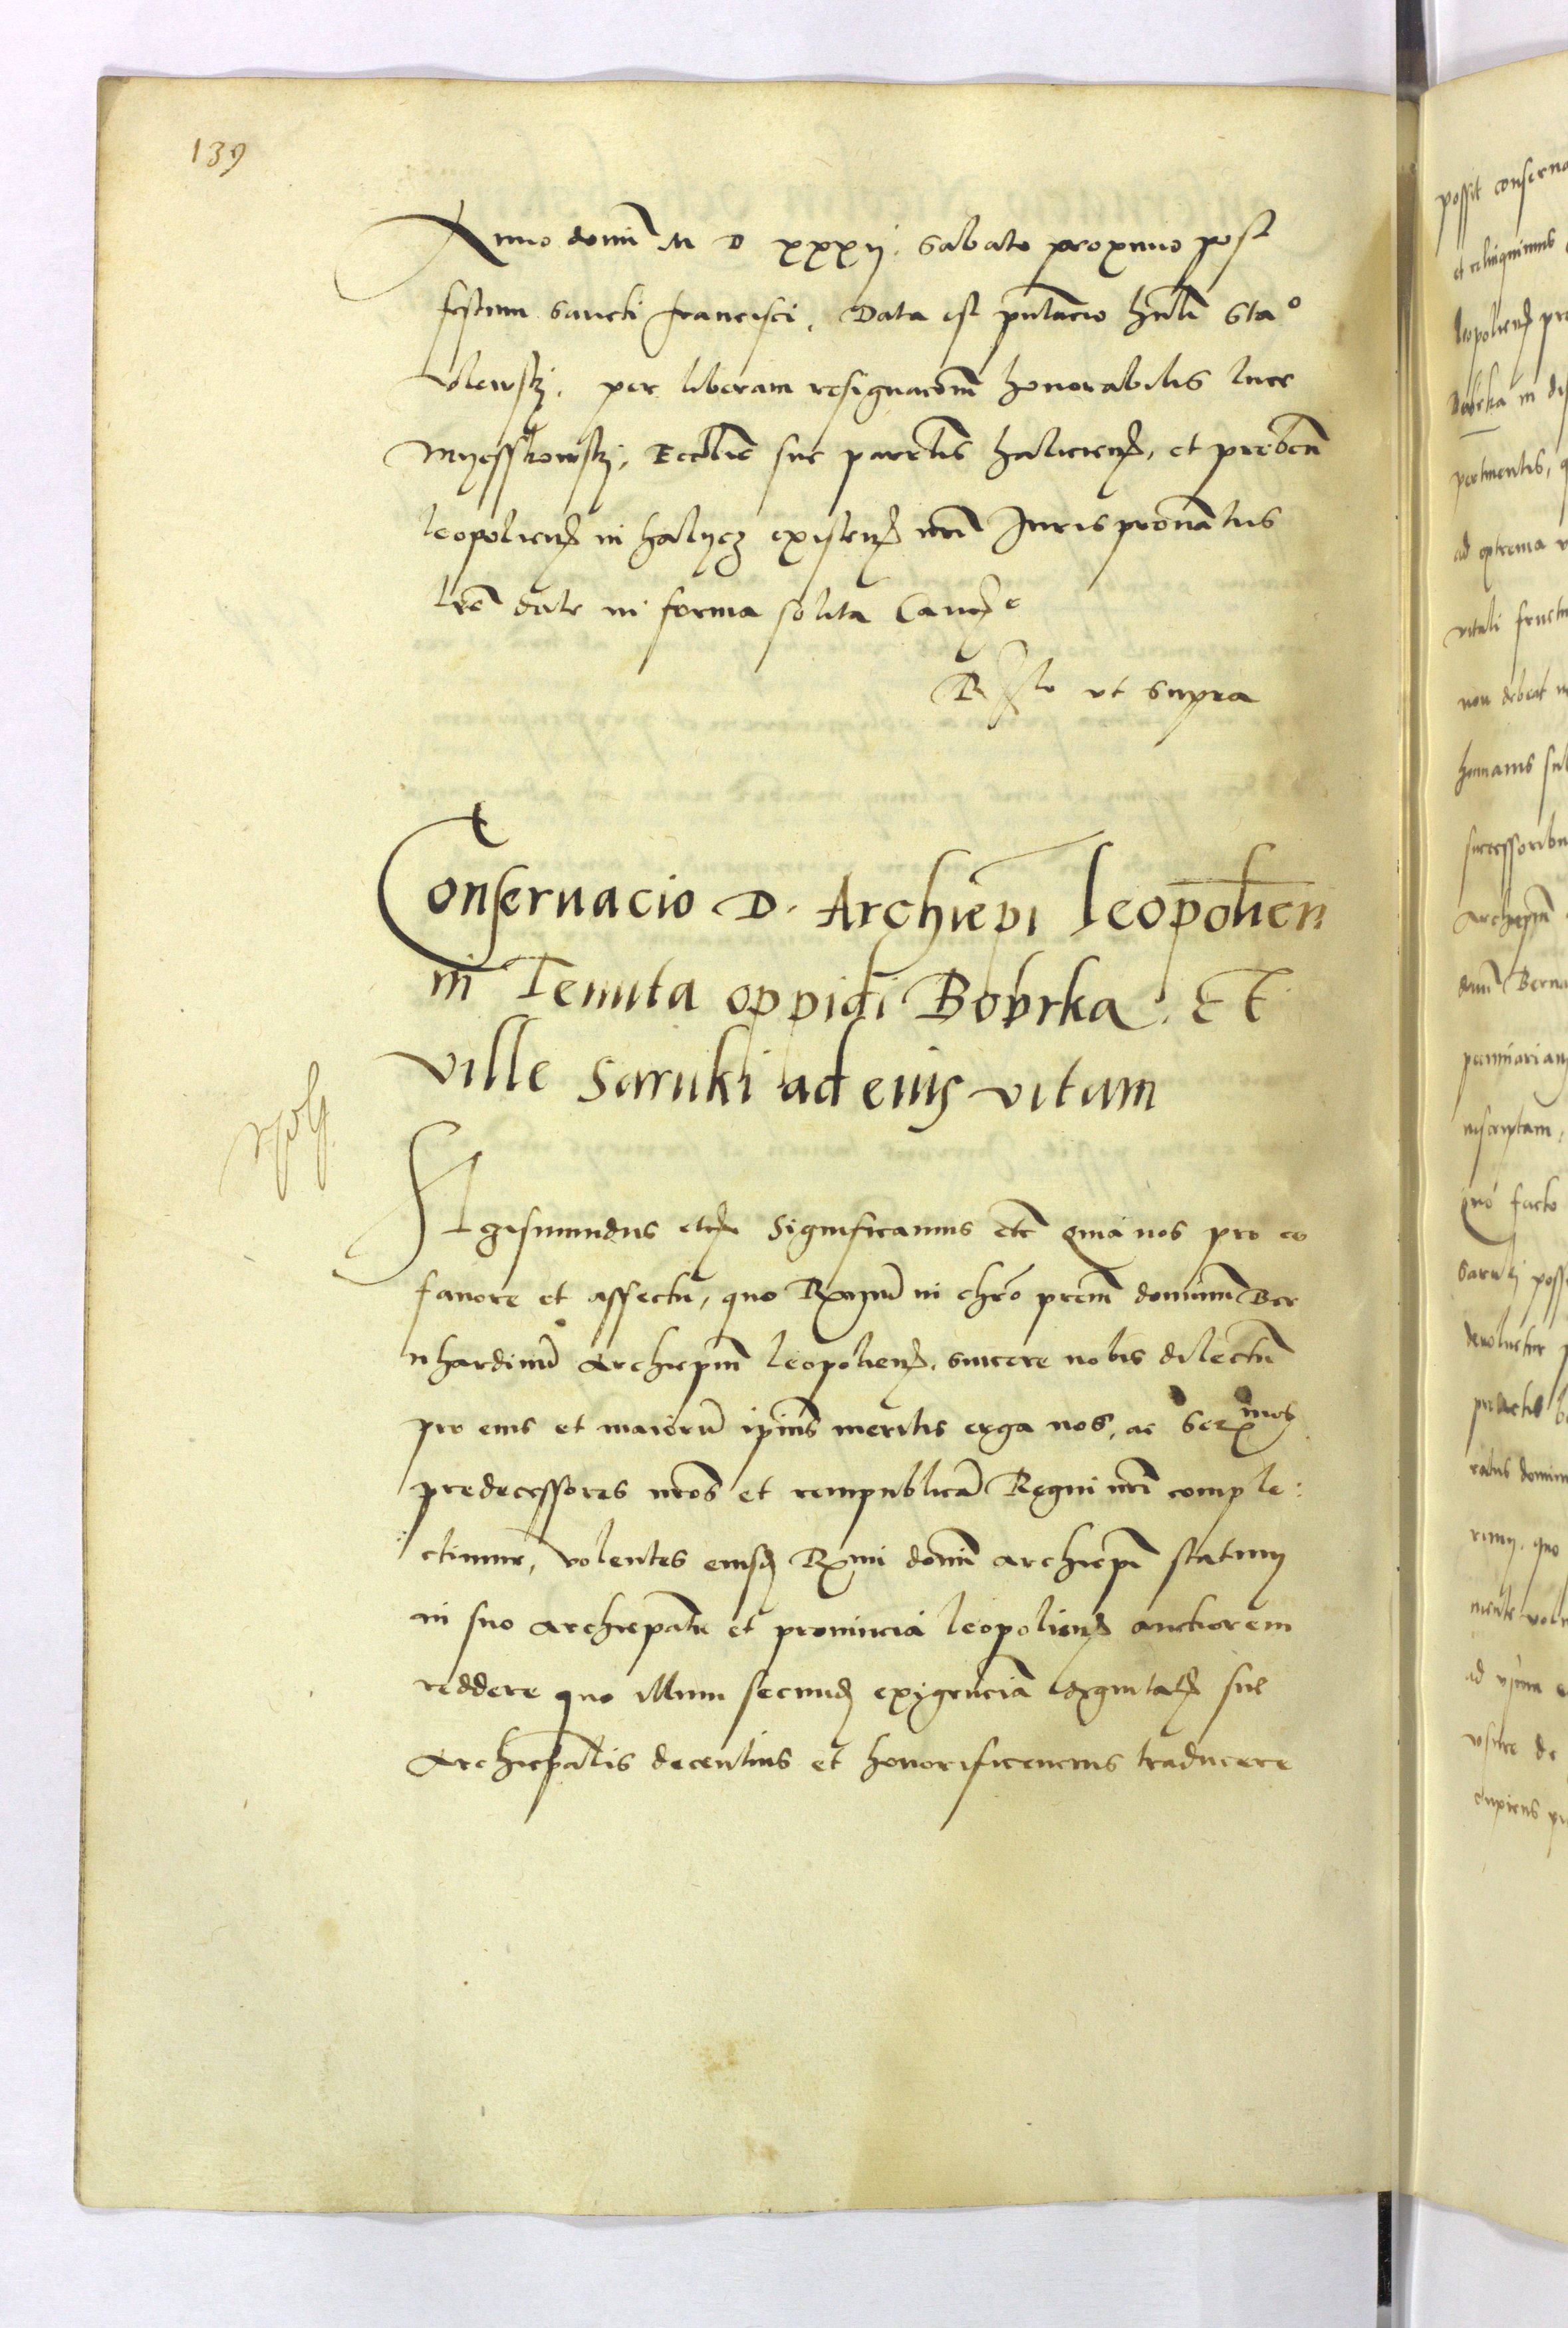 139
Anno domi M D xxxij. Sabato proximo post
festum sancti francisci. Data est pntacio hnli Sta°
per liberam resignacom honorabilis luce
Myesskowskj, Ecclie sue parrclis halicien, et preben
leopolien in halycz existen nri Jurispronatus
lre date in forma solita Canc e
Rllo vt supra
Conseruacio D. Archiepi leopolien
in Tenuta oppidi Bobrka. Et
ville Saruki ad eius vitam
SIgismundus etc Significamus etc Quia nos pro eo
fauore et affectu, quo Rxmum in chro prem dominum Ber
nhardinu Archiepm leopolien. sincere nobis dilectu
pro eius et maioru ipius meritis erga nos, ac Serxmos
predecessores nros et rempublica Regni nri comple:
:ctimur, volentes eiusd Rxmi domi archiepi statum
in suo archiepatu et prouincia leopolien auctiorem
reddere quo illum secund exigencia dignitat sue
Archiepalis decentius et honorificencius traducere
possit conserua
et relinquimus
leopolien pro
Bobrka in dis
pertinentis, q
ad extrema v
vitali fructu
non debeat
humanis sub
successoribu
Archiepm
dnm Berna
pecuniarian
inscriptam,
quo facto
Saruki poss
deuoluetur p
ratus domin
mente volu
ad vsum e
vsure de
cupiens pr